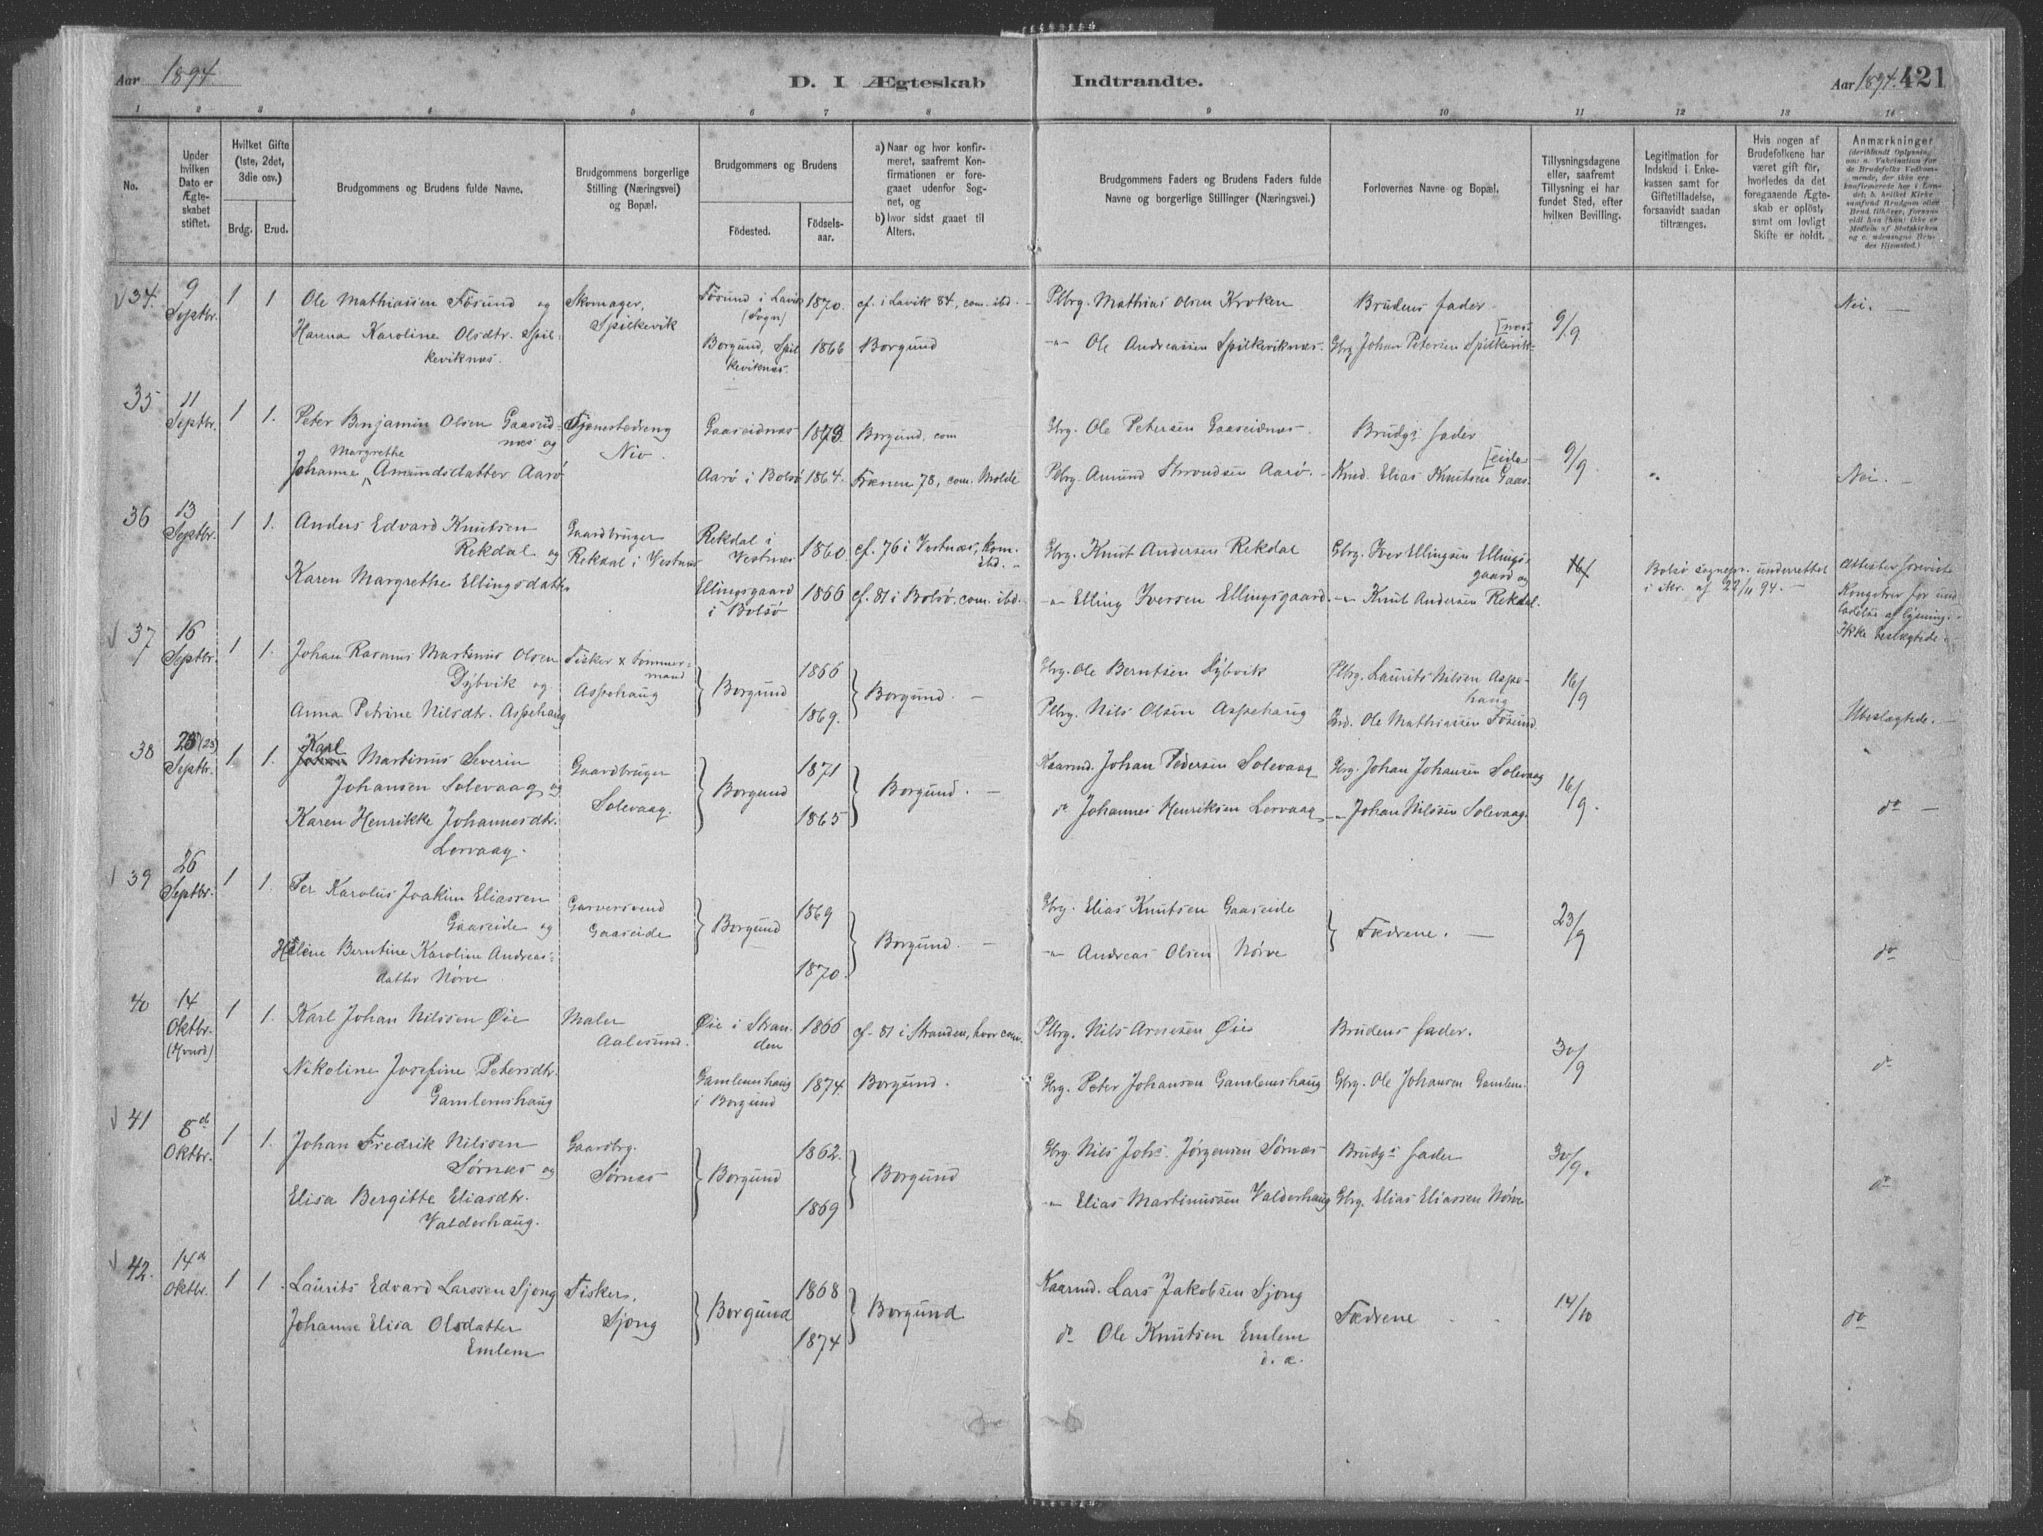 Aar 1894
D. I Ægteskab
Indtrandte.
Aar 1894. 421
1 2 3 4 5 6 7 8 9 10 11 12 13 14
No.
Under hvilken Dato er Ægteskabet stiftet.
Hvilket Gifte (1ste, 2det, 3die osv.)
Brdg. Brud.
Brudgommens og Brudens fulde Navne.
Brudgommens borgerlige Stilling (Næringsvei) og Bopæl.
Brudgommens og Brudens
Födested.
Födsels-aar.
a) Naar og hvor konfirmeret, saafremt Konfirmationen er foregaaet udenfor Sognet, og
b) hvor sidst gaaet til Alters.
Brudgommens Faders og Brudens Faders fulde Navne og borgerlige Stillinger (Næringsvei.)
Forlovernes Navne og Bopæl.
Tillysningsdagene eller, saafremt Tillysning ei har fundet Sted, efter hvilken Bevilling.
Legitimation for Indskud i Enkekassen samt for Giftetilladelse, forsaavidt saadan tiltrænges.
Hvis nogen af Brudefolkene har været gift för, hvorledes da det foregaaende Ægteskab er oplöst, samt om lovligt Skifte er holdt.
Anmærkninger
34. 9 Septbr. 1 1 Ole Mathiassen Fösund og Skomager, Spilkevik Fösund i Lavik (Sogn) 1870. cf. i Lavik 84, com. ibd. Plbrg. Mathias Olsen Kroken Brudens fader 9/9 Nei.
Hanna Karoline Olsdtr. Spilkeviknæs. Borgund, Spilkeviknæs. 1866 Borgund " Ole Andreassen Spilkeviknæs. Gbrg Johan Petersen Spilkeviknæs
35 11 Septbr. 1 1. Peter Benjamin Olsen Gaaseidnæs og Tjenestedreng Niv. Gaaseidnæs 1873 Borgund, com Gbrg. Ole Petersen Gaaseidnæs. Brudgs fader 9/9 " Nei.
Johanne Margrethe Amundsdatter Aarö Aarö i Bolsö 1864. Frænen 78, com. Molde Plbrg. Amund Aarö. Knud. Elias Knutsen Gaaseide
36 13 Septbr. 1 1. Anders Edvard Knutsen Rekdal og Gaardbruger Rekdal i Vestnæs Rekdal i Vestnæs 1860. cf. 76 i Vestnæs, kom. ibd. Gbrg. Knut Andersen Rekdal Gbrg. Iver Ellingsen Ellingsgaard og Bolsö sognepr. underrettet i skr. af 22/11 94.
Karen Margrethe Ellingsdatter Ellingsgaard i Bolsö 1866 cf. 81 i Bolsö, com. ibd. " Elling Iversen Ellingsgaard. " Knut Andersen Rekdal. Attester foreviste Kongebrev for undladelse af lysning. Ikke beslægtede
37 16 Septbr. 1 1. Johan Rasmus Martinus Olsen Dybvik og Fisker & tømmermand Aspehaug Borgund 1866 Borgund. Gbrg. Ole Berntsen Dybvik Plbrg. Laurits Nilsen Aspehaug 16/9
Anna Petrine Nilsdtr. Aspehaug 1869. Plbrg. Nils Olsen Aspehaug Ind. Ole Mathiassen Fösund Ubeslægtede.
38 (23) Septbr. 1 1. Karl Martinus Severin Johansen Solevaag og Gaardbruger Solevaag. Borgund 1871 Borgund. Kaarmd. Johan Pedersen Solevaag Gbrg. Johan Johansen Solevaag 16/9.
Karen Henrikke Johannesdtr. Lorvaag. 1865 do Johannes Henriksen Lorvaag " Johan Nilssen Solevaag. do
39 26 Septbr. 1 1. Per Karolus Joakim Eliassen Gaaseide og Garversvend Gaaseide Borgund 1869 Borgund. Gbrg. Elias Knutsen Gaaseide Fædrene. 23/9
Helene Berntine Karoline Andreasdatter Nörve 1870. " Andreas Olsen Nörve do
40 14 Oktbr. 1 1. Karl Johan Nilssen Øie Maler Aalesund. Øie i Stranden 1866 cf. 81 i Stranden, hvor com. Plbrg. Nils Arnesen Øie Brudens fader. 30/9
Nikoline Josefine Petersdtr. Gamlemshaug Gamlemshaug i Borgund 1874. Borgund. Gbrg. Peter Johansen Gamlemshaug Gbrg. Ole Johansen Gamlem. do
41 8de Oktbr. 1 1. Johan Fredrik Nilssen Sørnæs og Gaardbrg. Sørnæs Borgund 1862. Borgund Gbrg. Nils Johs. Jørgensen Sørnæs Brudgs fader 30/9.
Elisa Bergitte Eliasdtr. Valderhaug. 1869 " Elias Martinussen Valderhaug Gbrg. Elias Eliassen Nörve do
42. 14de Oktbr. 1 1. Laurits Edvard Larssen Sjong Fisker, Sjong Borgund 1868 Borgund Kaarmd. Lars Jakobsen Sjong Fædrene 14/10
Johanne Elisa Olsdatter Emlem 1874 do Ole Knutsen Emlem d. æ. do